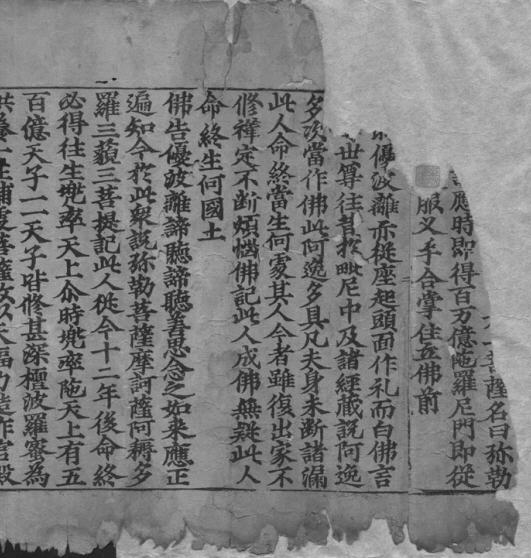 一菩薩名曰弥勒
應時即得百万億陁羅尼門即從
服义手合掌住立佛前
優波離亦從座起頭面作礼而白佛言
世尊往昔於毗尼中及諸經藏說阿逸
多次當作佛此阿逸多具凡夫身未断諸漏
此人命終當生何處其人今者雖復出家不
修禅定不断煩惱佛記此人成佛無疑此人
命終生何國土
佛告優波離諦聽諦聽善思念之如来應正
遍知今於此衆說弥勒菩薩摩訶薩阿耨多
羅三藐三菩提記此人從今十二年後命終
必得往生兜率天上尒時兜率陁天上有五
百億天子一一天子皆修甚深檀波羅蜜為
供養一生補處菩薩故以天福力造作宫殿